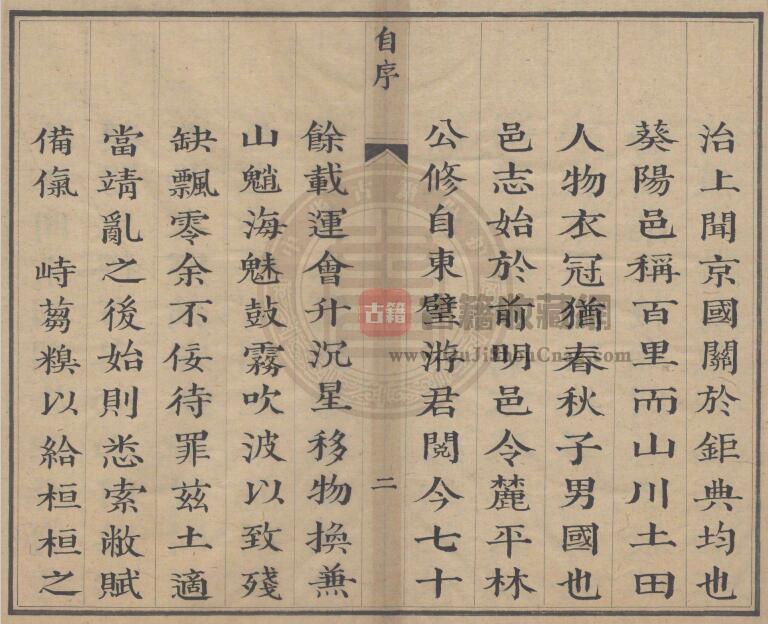 治上聞京國關於鉅典均也
葵陽邑稱百里而山川土田
人物衣冠猶春秋子男國也
邑志始於前明邑令麓平林
公修自東壁游君閱今七十
自序
二
餘載運會升沉星移物換兼
山魈海魅鼓霧吹波以致殘
缺飄零余不佞待罪茲土適
當靖亂之後始則悉索敝賦
備偫 峙芻糗以給桓桓之
古籍
古籍收藏網